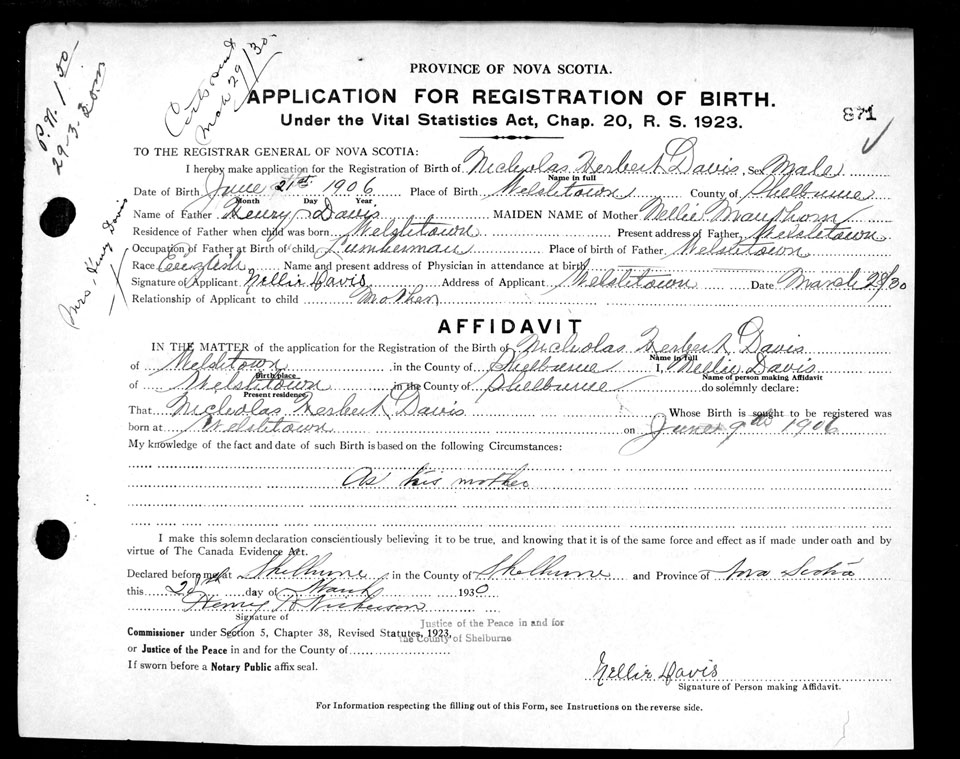 P.N. 1.50
29-3-30
Mrs. Henry Davis
Cert. sent
Mar 29/30
PROVINCE OF NOVA SCOTIA.
APPLICATION FOR REGISTRATION OF BIRTH.
Under the Vital Statistics Act, Chap. 20, R. S. 1923.
871
TO THE REGISTRAR GENERAL OF NOVA SCOTIA:
I hereby make application for the Registration of Birth of Nicholas Herbert Davis, Sex Male
Name in full
Date of Birth June 21st 1906 Place of Birth Welshtown County of Shelburne
Month Day Year
Name of Father Henry Davis MAIDEN NAME of Mother Nellie
Residence of Father when child was born Welshtown Present address of Father, Welshtown
Occupation of Father at Birth of child Lumberman Place of birth of Father, Welshtown
Race English Name and present address of Physician in attendance at birth
Signature of Applicant Nellie Davis Address of Applicant Welshtown Date March 28/30
Relationship of Applicant to child Mother
AFFIDAVIT
IN THE MATTER of the application for the Registration of the Birth of Nicholas Herbert Davis
Name in full
of Welshtown in the County of Shelburne I, Nellie Davis
Birth place Name of person making Affidavit
of Welshtown in the County of Shelburne do solemnly declare:
Present residence
That Nicholas Herbert Davis Whose Birth is sought to be registered was
born at Welshtown on June 1906
My knowledge of the fact and date of such Birth is based on the following Circumstances:
As his mother
I make this solemn declaration conscientiously believing it to be true, and knowing that it is of the same force and effect as if made under oath and by
virtue of The Canada Evidence Act.
Declared before me at Shelburne in the County of Shelburne and Province of Nova Scotia
this 28th day of March 1930
Henry Nickerson
Signature of
Justice of the Peace in and for
Commissioner under Section 5, Chapter 38, Revised Statutes, 1923,
the County of Shelburne
or Justice of the Peace in and for the County of
If sworn before a Notary Public affix seal.
Nellie Davis
Signature of Person making Affidavit.
For Information respecting the filling out of this Form, see Instructions on the reverse side.